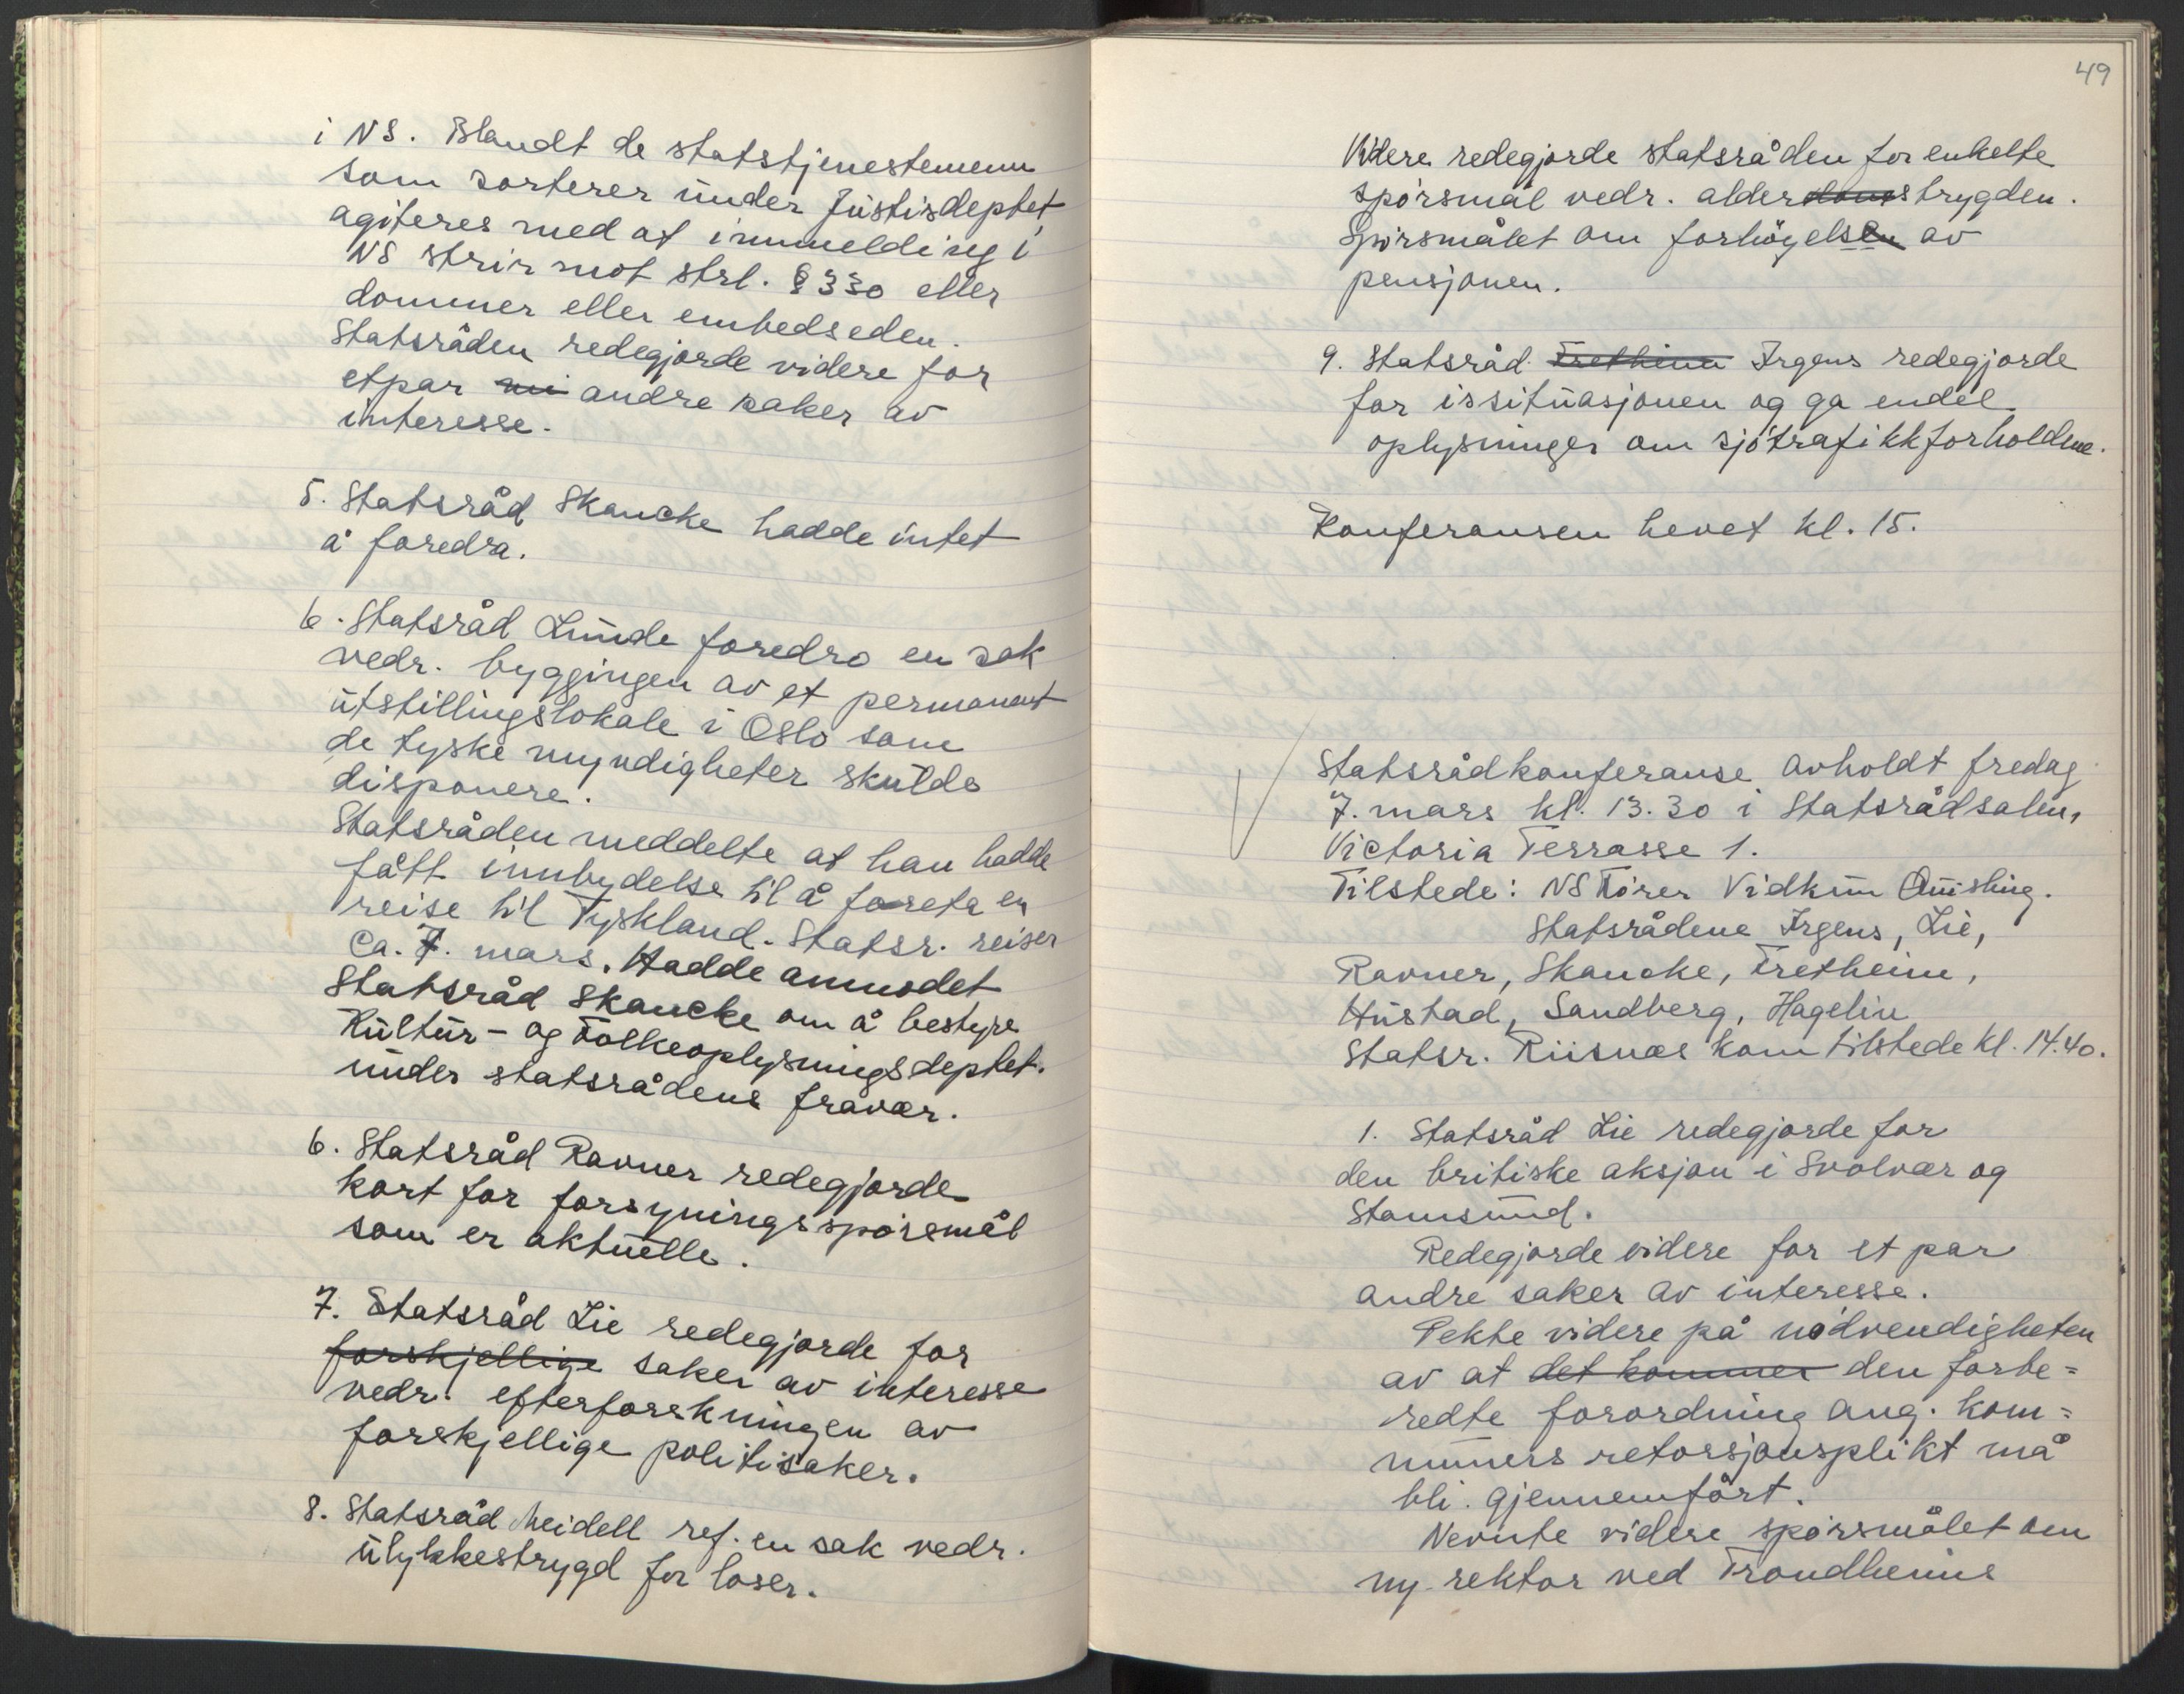 i NS. Blandt de statstjenestemenn
som sorterer under Justisdeptet
agiteres med at innmelding i
NS strir mot strl. § 330 eller
dommer eller embedseden.
Statsråden redegjorde videre for
etpar andre saker av
interesse.
5. Statsråd Skancke hadde intet
å foredra.
6. Statsråd Lunde foredro en sak
vedr. byggingen av et permanent
utstillingslokale i Oslo som
de tyske myndigheter skulde
disponere.
Statsråden meddelte at han hadde
fått innbydelse til å foreta en
reise til Tyskland. Statsr. reiser
ca. 7. mars. Hadde anmodet
Statsråd Skancke om å bestyre
Kultur- og Folkeoplysningsdeptet.
under statsrådens fravær.
6. Statsråd Ravner redegjorde
kort for forsyningsspörsmål
som er aktuelle.
7. Statsråd Lie redegjorde for
forskjellige saker av interesse
vedr. efterforskningen av
forskjellige politisaker.
8. Statsråd Meidell ref. en sak vedr.
ulykkestrygd for loser.
49
Videre redegjorde statsråden for enkelte
spörsmål vedr. alderdomstrygden.
Spörsmålet om forhöyelsen av
pensjonen.
9. Statsråd Fretheim Irgens redegjorde
for issituasjonen og ga endel
oplysninger om sjötrafikkforholdene.
Konferansen hevet kl. 15.
Statsrådkonferanse avholdt fredag
7. mars kl. 13.30 i Statsrådsalen,
Victoria Terrasse 1.
Tilstede: NS Förer Vidkun Quisling.
Statsrådene Irgens, Lie,
Ravner, Skancke, Fretheim,
Hustad, Sandberg, Hagelin
Statsr. Riisnæs kom tilstede kl. 14.40.
1. Statsråd Lie redegjorde for
den britiske aksjon i Svolvær og
Stamsund.
Redegjorde videre for et par
andre saker av interesse.
Pekte videre på nödvendigheten
av at det kommer den forbe=
redte forordning ang. kom=
muners retorsjonsplikt må
bli gjennemfört.
Nevnte videre spörsmålet om
ny rektor ved Trondheims